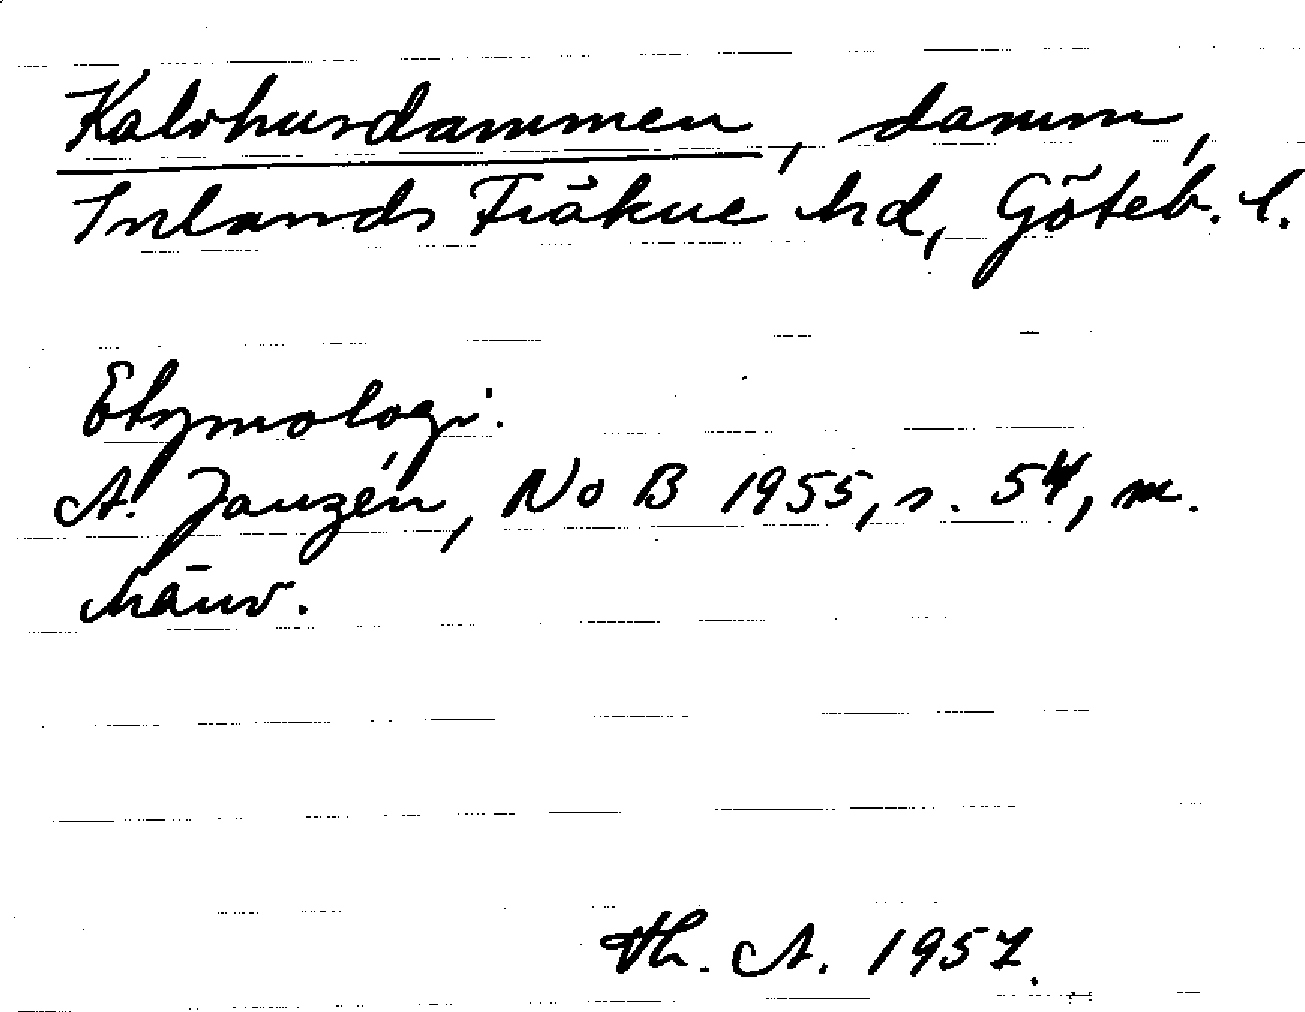 Kalvhusdammen, damm,
Inlands Fräkne hd, Göteb. l.
Etymologi:
A. Janzén, NoB 1955, s. 54, m.
hänv.
Th. A. 1957.